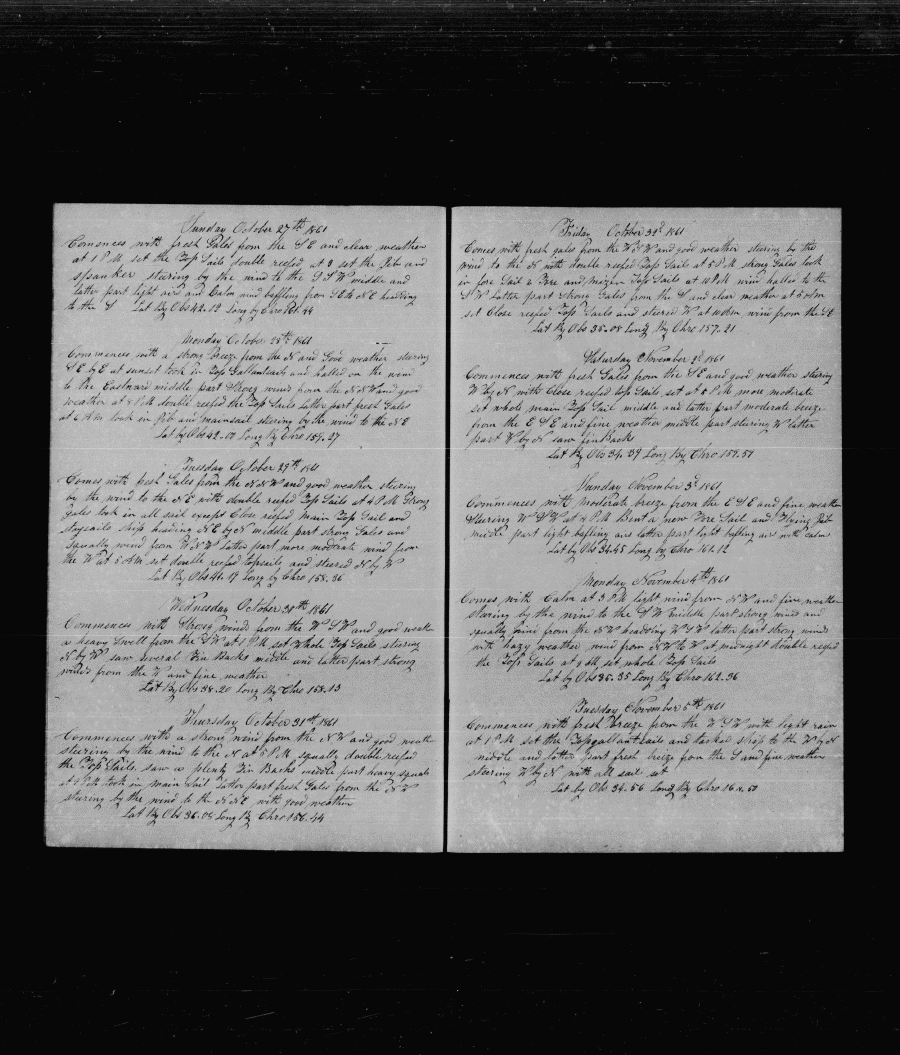 Sunday October 27th 1861
Comences with fresh Gales from the S E and clear weather
at 1 P.M. set the Top Sails double reefed at 3 set the Jib and
Spanker steering by the wind to the S S W middle and
latter part light airs and Calm wind baffling from S E to N E heading
to the S Lat By Obs 42.12 Long by Chro 161.44
Monday October 28th 1861
Commences with a strong breeze from the N and Good weather steering
S E by E at sunset took in Top Gallantsails and halled on the wind
to the Eastward middle part Strong wind from the N N W and good
weather at 8 P.M. double reefed the Top Sails Latter part fresh Gales
at 6 A.M. took in Jib and mainsail steering by the wind to the N E
Lat by Obs 42.07 Long By Chro 159.27
Tuesday October 29th 1861
Comes with fresh Gales from the N N W and good weather steering
by the wind to the N E with double reefed Top Sails at 4 P.M. Strong
gales took in all sail except Close reefed Main Top Sail and
staysails ship heading N E by N middle part strong Gales and
squally wind from W N W Latter part more moderate wind from
the W at 5 A.M. set double reefed topsails and steered N by W
Lat By Obs 41.17 Long by Chro 158.36
Wednesday October 30th 1861
Commences with Strong winds from the W S W and good weathe
a heavy Swell from the S W at 1 P.M. set Whole Top Sails steering
N by W saw several Fin Backs middle and latter part strong
winds from the W and fine weather
Lat By Obs 38.20 Long By Chro 158.13
Thursday October 31st 1861
Commences with a strong wind from the N W and good weathe
steering by the wind to the N at 5 P.M. squally double reefed
the Top Sails saw a plenty Fin Backs middle part heavy squals
at 9 P.M. took in main Sail Latter part fresh Gales from the N W
steering by the wind to the N N E with good weather
Lat By Obs 36.08 Long By Chro 156.44
Friday October 32d 1861
Comes with fresh gales from the W N W and good weather steering by the
wind to the N with double reefed Top Sails at 5 P.M. strong Gales took
in fore Sail & Fore and Mizen Top Sails at 10 P.M. wind halled to the
S W Latter part Strong Gales from the S and clear weather at 5 A.M.
set Close reefed Top Sails and steered W at 10 A.M. wind from the S E
Lat By Obs 35.08 Long By Chro 157.21
Saturday November 2d 1861
Commences with fresh Gales from the S E and good weather steering
W by N with Close reefed top Sails set at 8 P.M. more moderate
set whole main Top Sail middle and latter part moderate breeze
from the E S E and fine weather middle part steering W latter
part W by N saw finBacks
Lat By Obs 34.39 Long By Chro 159.57
Sunday November 3d 1861
Commences with moderate breeze from the E S E and fine weather
Steering W S W at 4 P.M. Bent a new Fore Sail and Flying Jib
middle part light baffling airs latter part light baffling air with calm
Lat by Obs 34.45 Long by Chro 161.12
Monday November 4th 1861
Comes with Calm at 3 P.M. light wind from N W and fine weather
steering by the wind to the S W middle part strong wind and
squally wind from the N W heading W S W latter part strong wind
with hazy weather wind from N W to W at midnight double reefed
the Top Sails at 9 A.M. set whole Top Sails
Lat by Obs 35.35 Long By Chro 162.36
Tuesday November 5th 1861
Commences with fresh breeze from the W S W with light rain
at 1 P.M. set the Topgallantsails and tacked ship to the W by N
middle and latter part fresh breeze from the S and fine weather
steering W by N with all sail set
Lat by Obs 34.56 Long By Chro